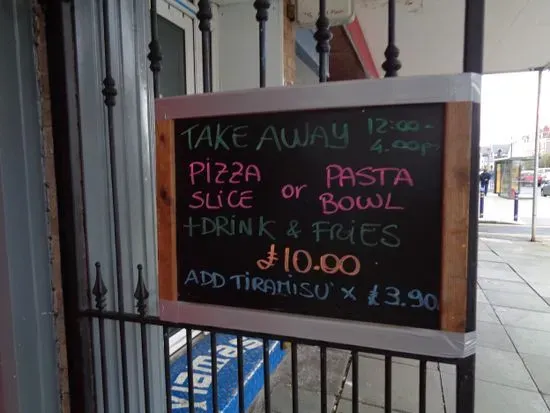 TAKE AWAY 12:00-
4.00pm
PIZZA SLICE or PASTA BOWL
+DRINK & FRIES
£10.00
ADD TIRAMISU' x £3.90